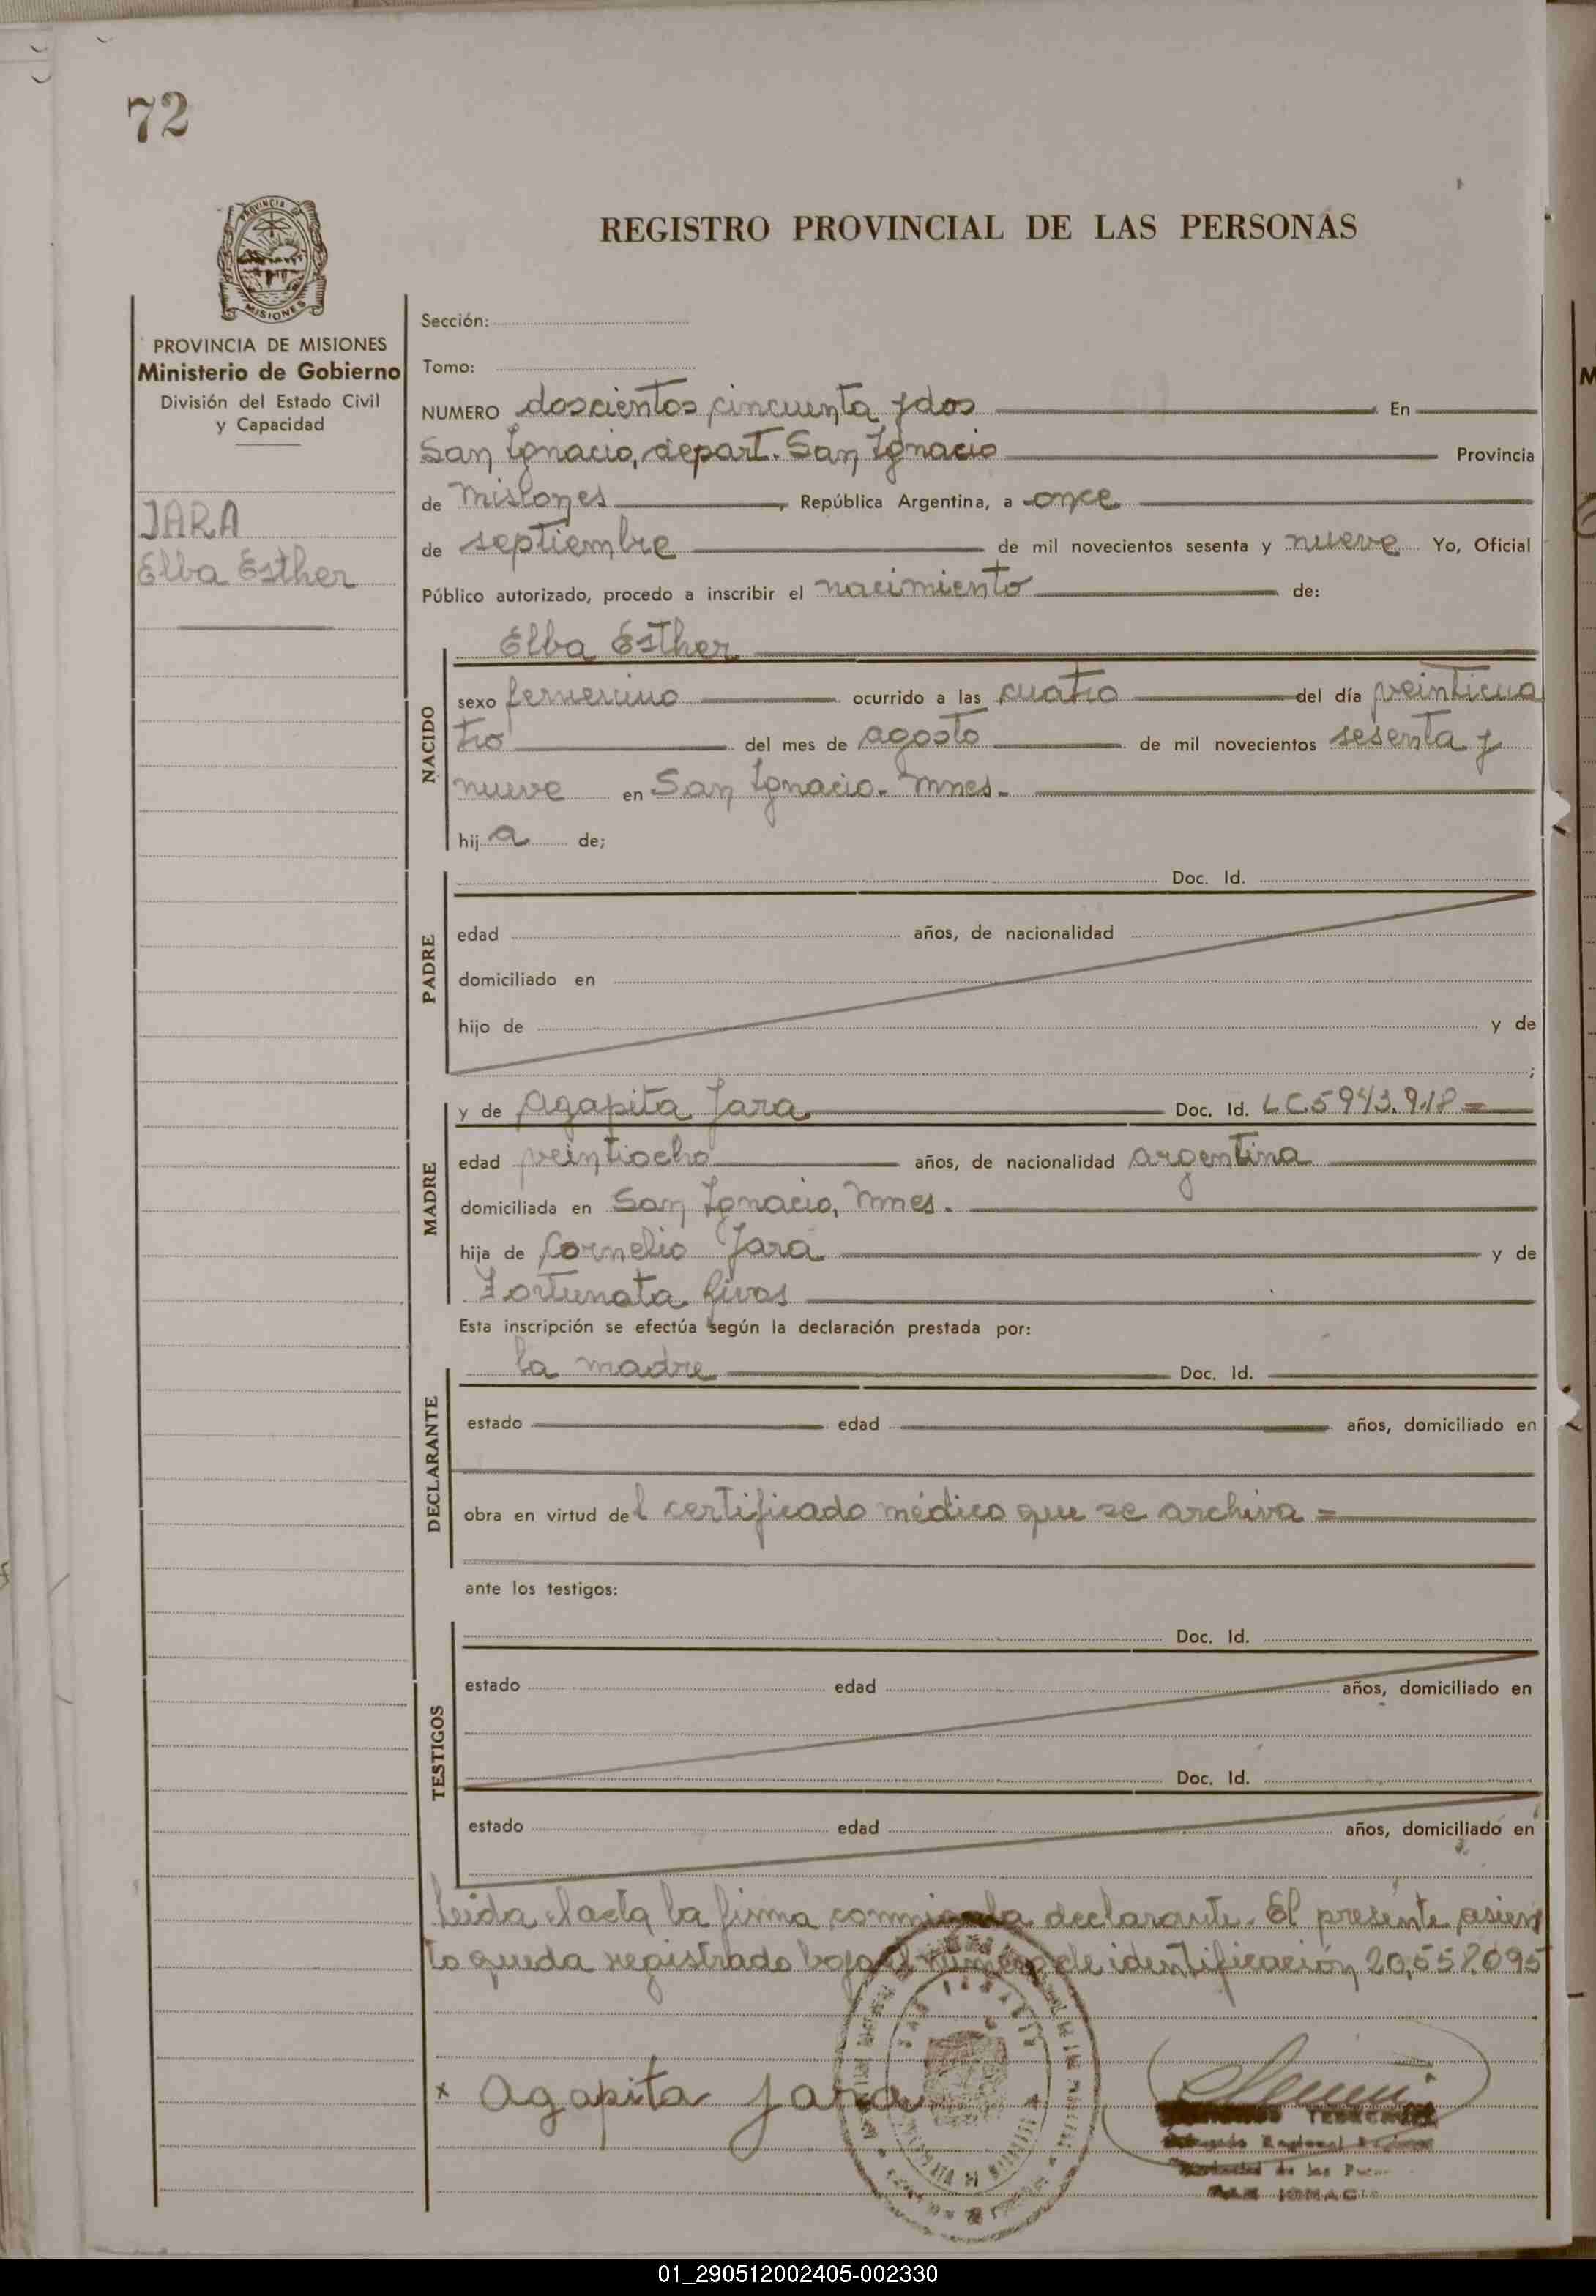 72
PROVINCIA DE MISIONES
REGISTRO PROVINCIAL DE LAS PERSONAS
PROVINCIA DE MISIONES
Ministerio de Gobierno
División del Estado Civil
y Capacidad
JARA
Elba Esther
Sección:
Tomo:
NUMERO doscientos cincuenta y dos En
San Ignacio, depart. San Ignacio Provincia
de Misiones, República Argentina, a once
de septiembre de mil novecientos sesenta y nueve Yo, Oficial
Público autorizado, procedo a inscribir el nacimiento de:
NACIDO
Elba Esther
sexo femenino ocurrido a las cuatro del día veinticua
tro del mes de agosto de mil novecientos sesenta y
nueve en San Ignacio. Mnes.
hija de;
PADRE
Doc. Id.
edad años, de nacionalidad
domiciliado en
hijo de y de
;
MADRE
y de Agapita Jara Doc. Id. LC 5943.918 =
edad veintiocho años, de nacionalidad argentina
domiciliada en San Ignacio, Mnes.
hija de Cornelio Jara y de
Fortunata
Esta inscripción se efectúa según la declaración prestada por:
DECLARANTE
la madre Doc. Id.
estado edad años, domiciliado en
obra en virtud del certificado médico que se archiva =
ante los testigos:
TESTIGOS
Doc. Id.
estado edad años, domiciliado en
Doc. Id.
estado edad años, domiciliado en
Leida el acta la firma conmigo la declarante. El presente asien
to queda registrado bajo el número de identificación 20,552.095
x Agapita Jara
SAN IGNACIO
01_290512002405-002330